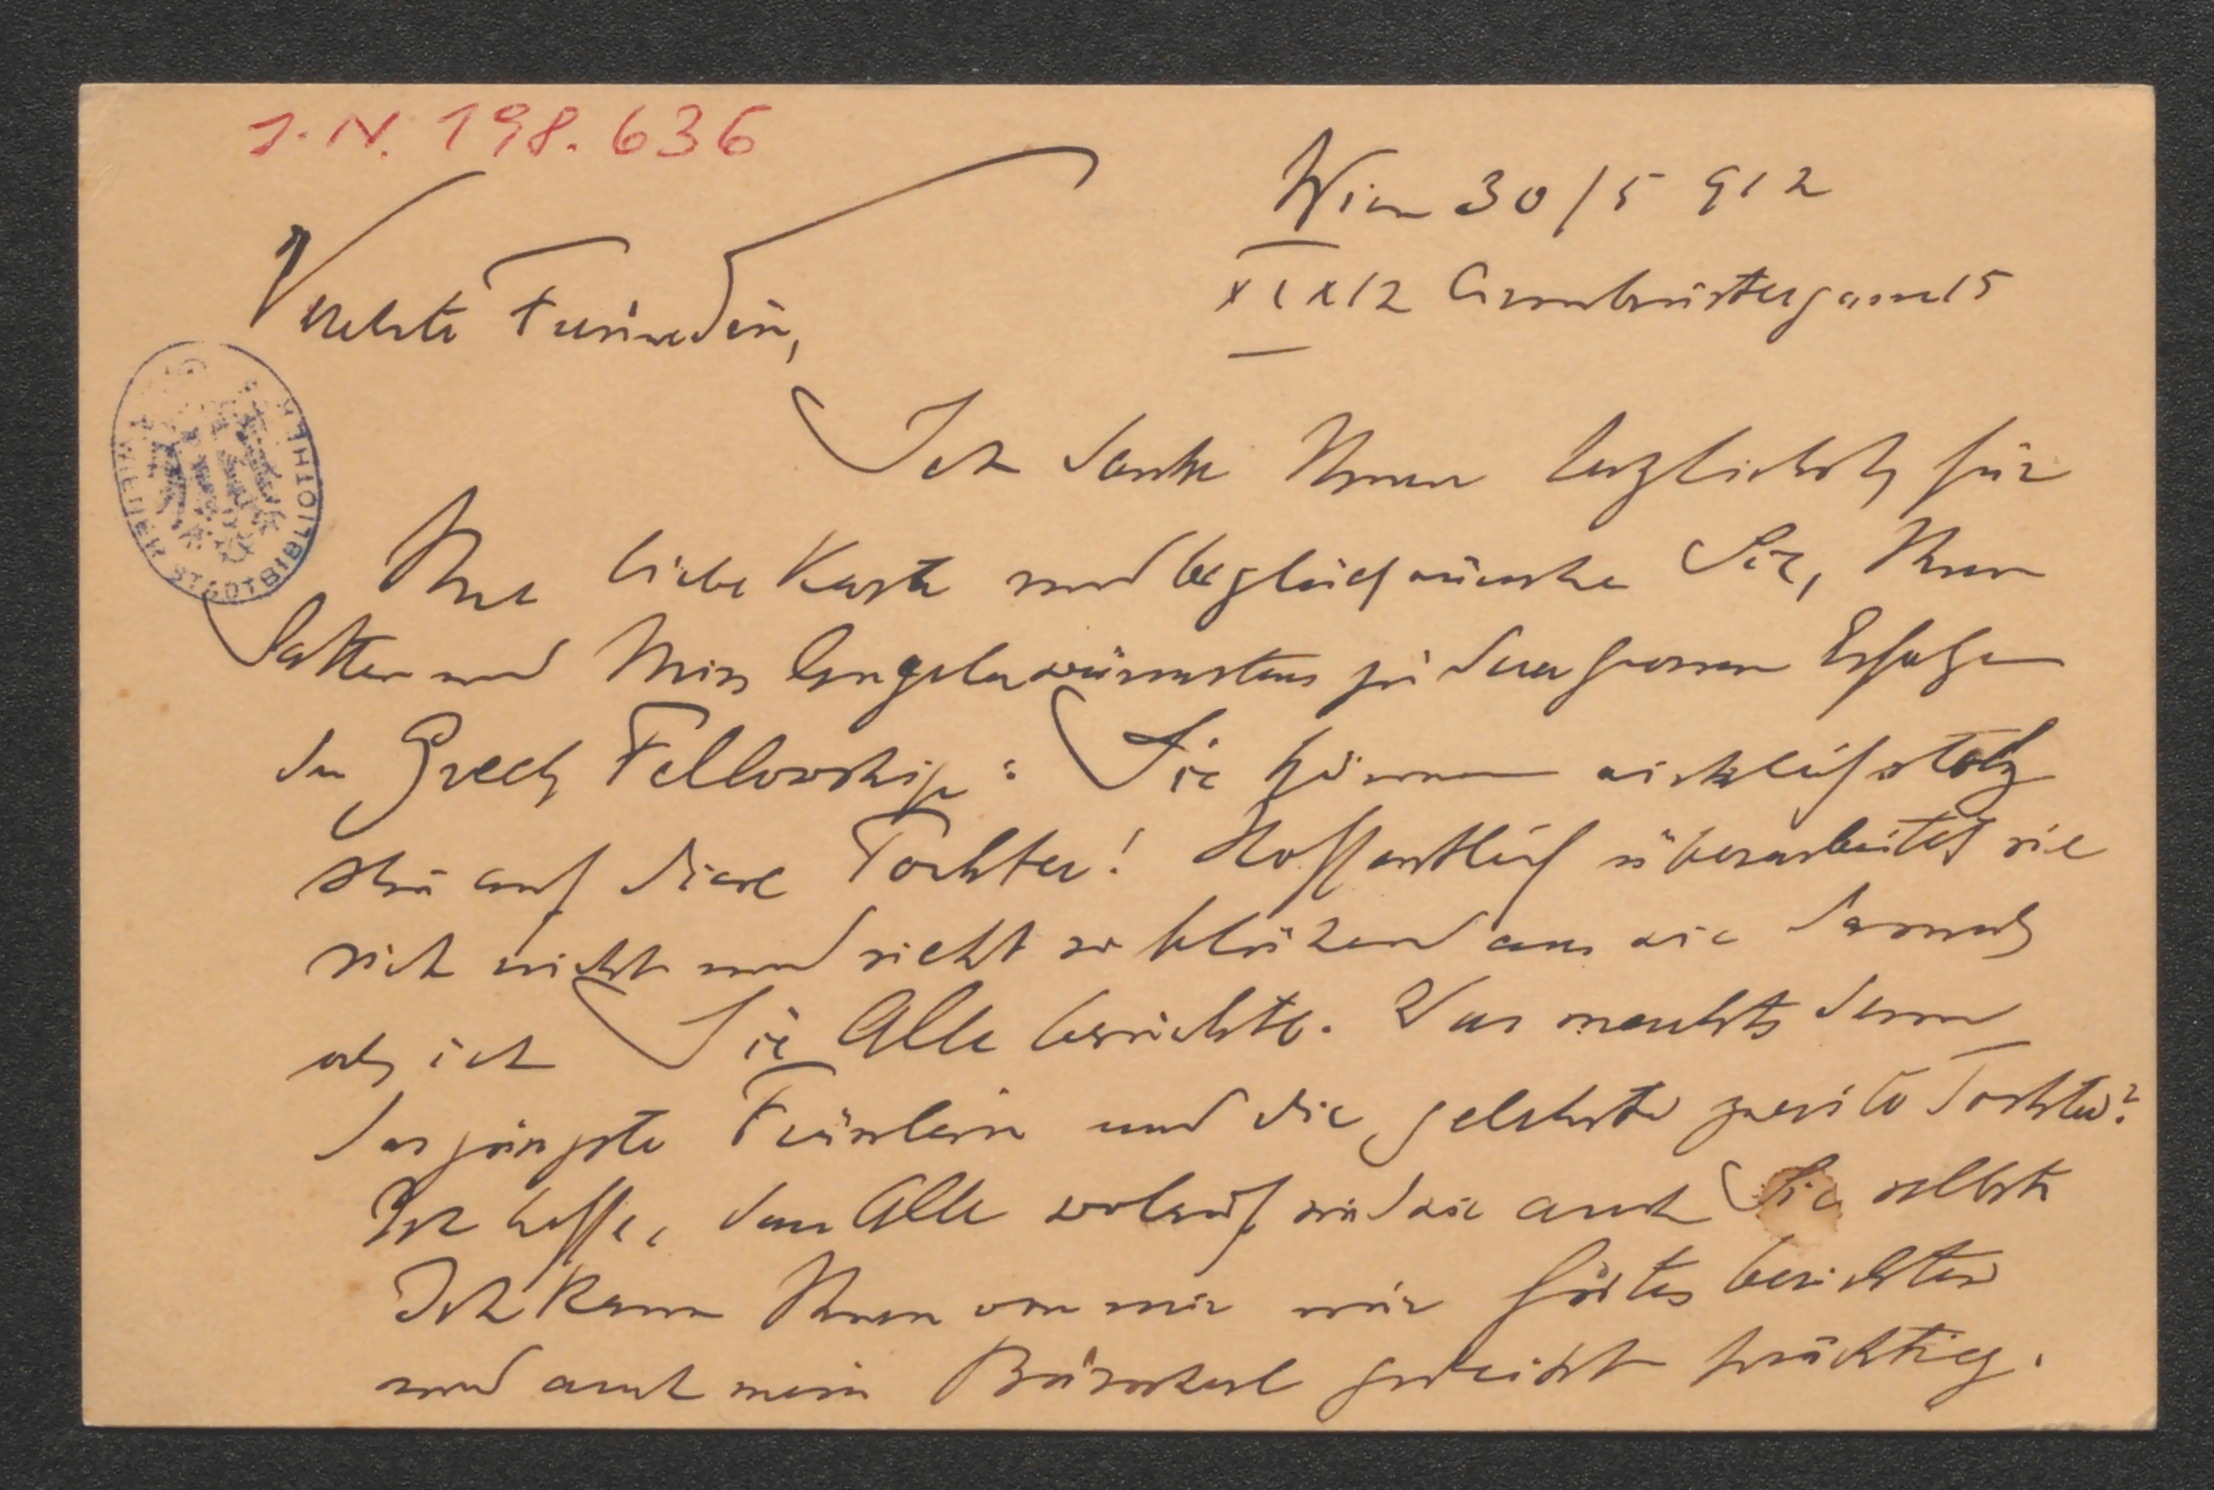 J.N. 198.636
Wien 30/5 912
XIX/2 Armbrustergasse 15
Verehrte Freundin,
Ich danke Ihnen herzlichst für
Ihre liebe Karte und beglückwünsche Sie, Ihren
Gatten und Miss Angela wärmstens zu dem grossen Erfolge
der Greek Fellowship: Sie können wirklich stolz
sein auf diese Tochter! Hoffentlich überarbeitet sie
sich nicht und sieht so blühend aus wie damals
als ich Sie Alle besuchte. Was macht denn
das jüngste Fräulein und die gelehrte zweite Tochter?
Ich hoffe, dass Alle wolauf sind wie auch Sie selbst
Ich kann Ihnen von mir nur Gutes berichten
und auch mein Bürscherl gedeiht prächtig.
WIENER STADTBIBLIOTHEK